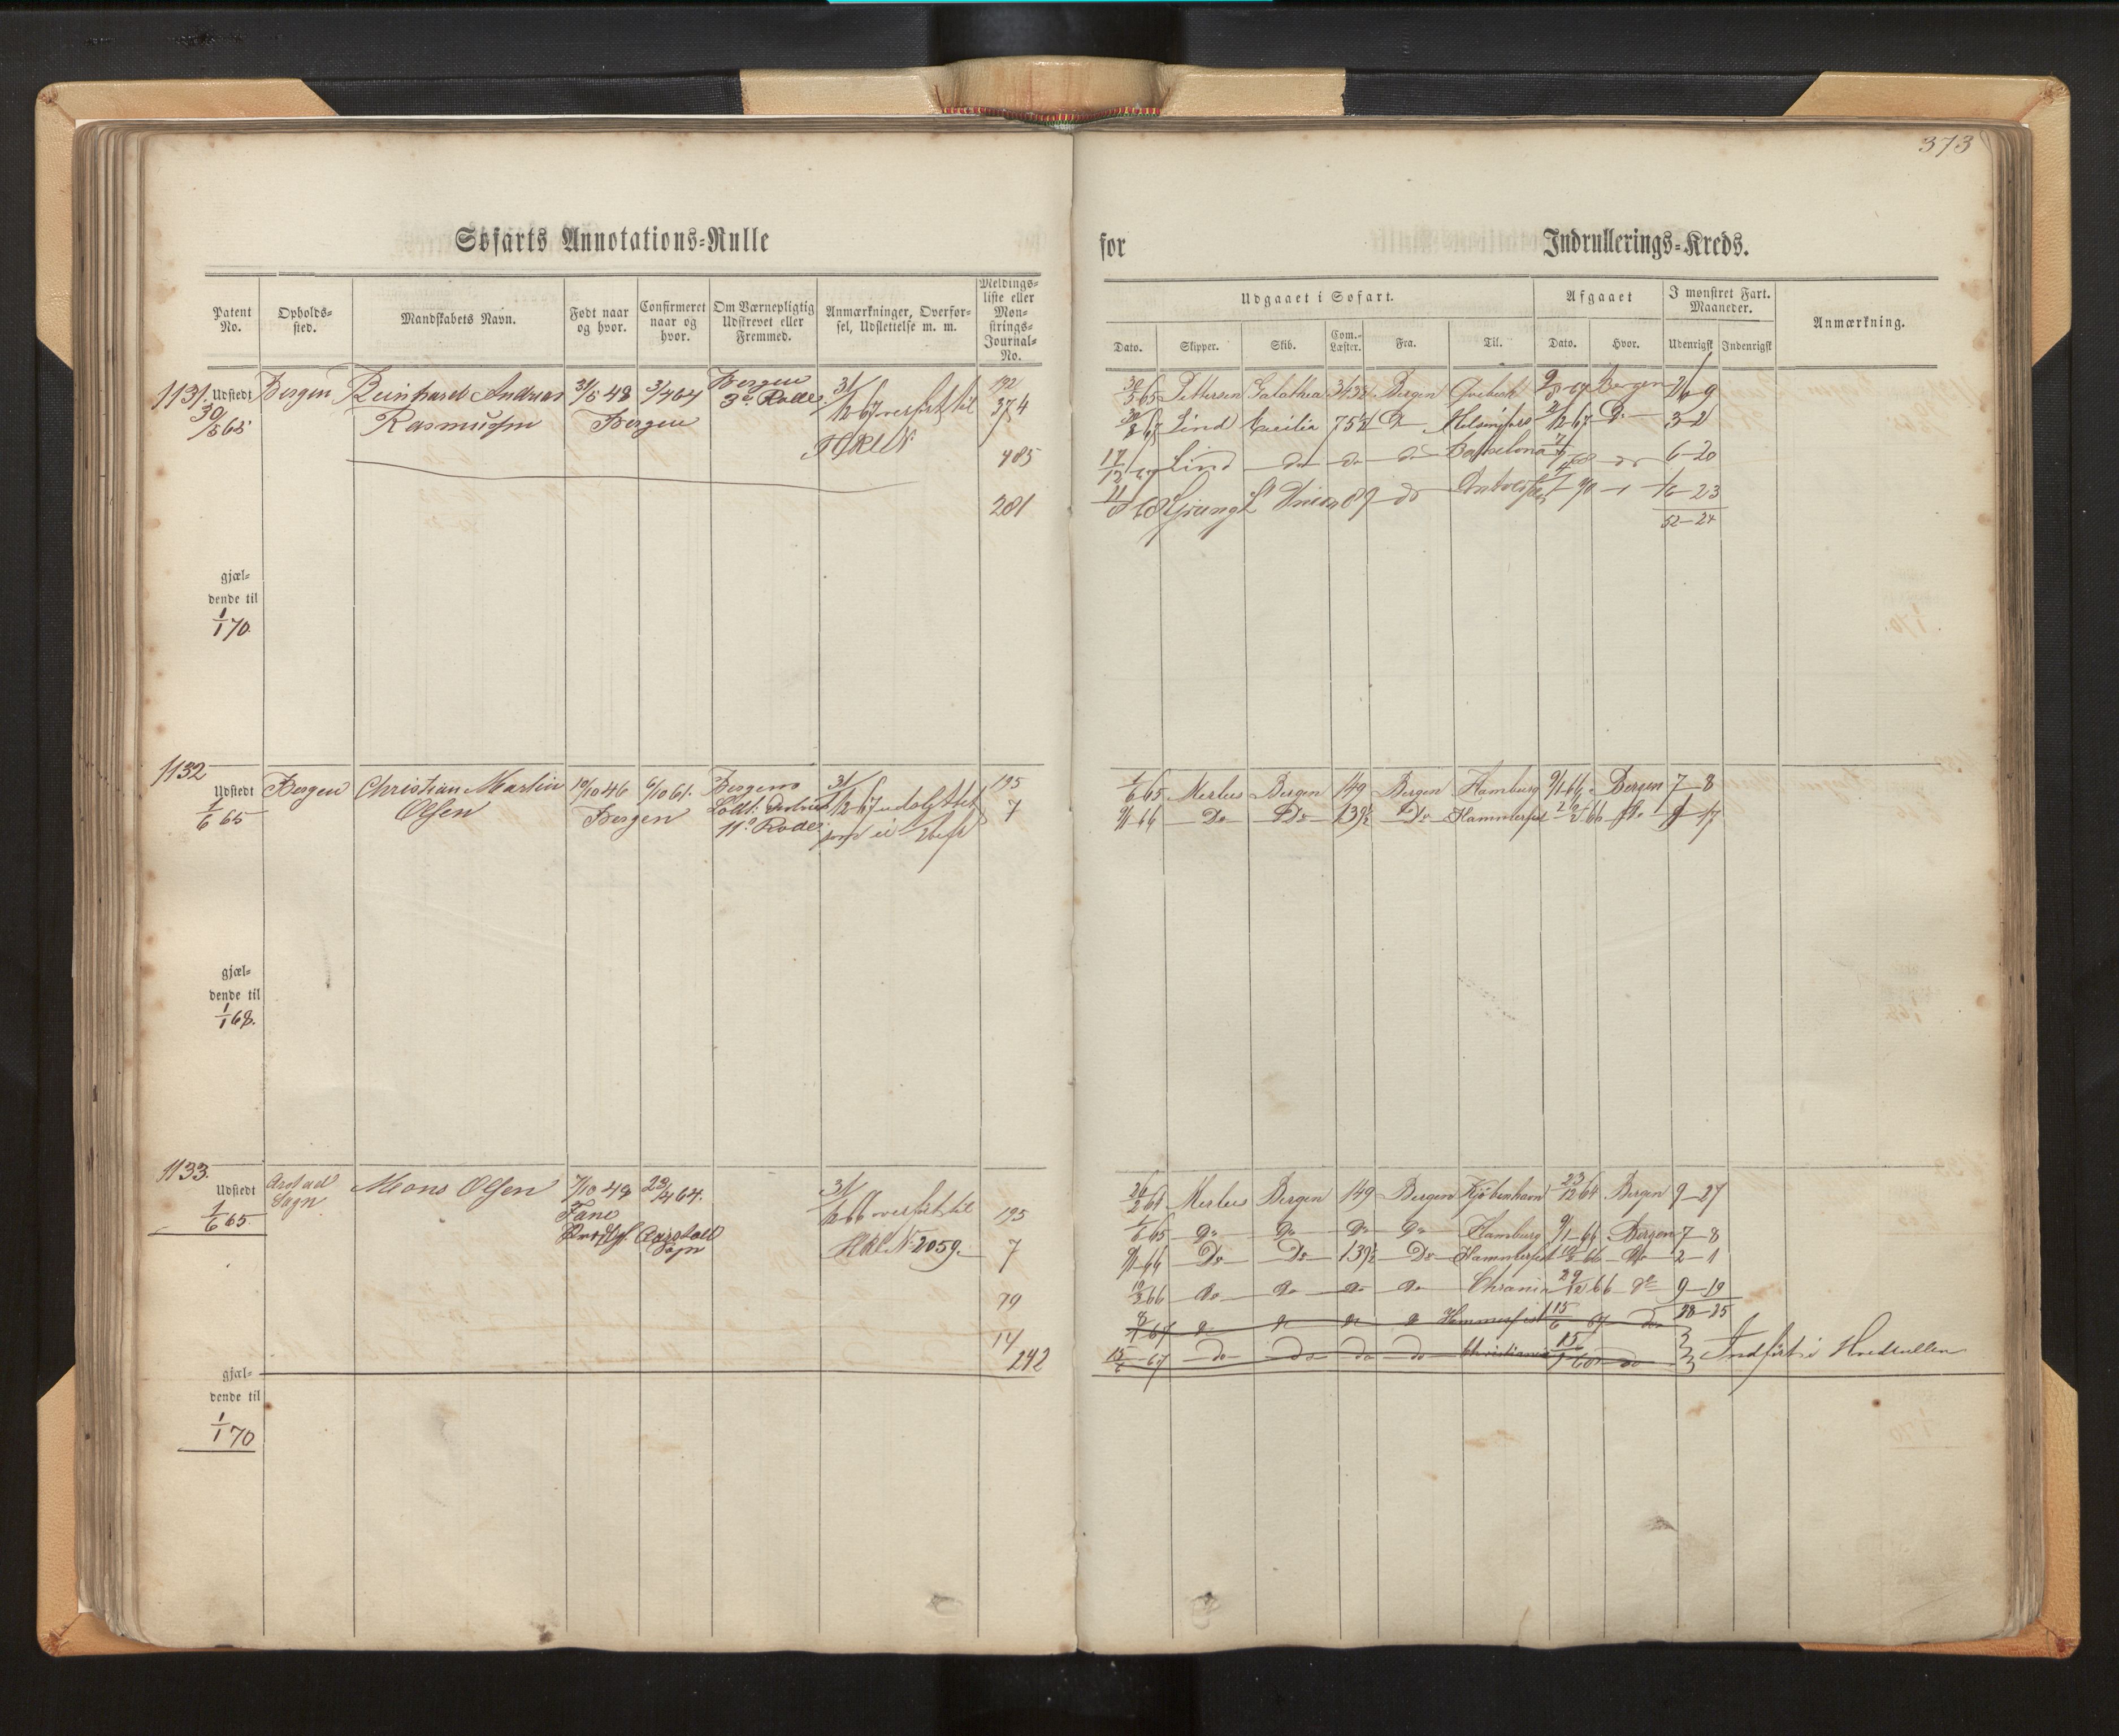 373
Søfarts Annotations-Rulle
for
Indrullerings-Kreds.
Patent No.
Opholds-sted.
Mandskabets Navn.
Født naar og hvor.
Confirmeret naar og hvor.
Om Værnepligtig Udskrevet eller Fremmed.
Anmærkninger, Overførsel, Udslettelse m. m.
Meldings-liste eller Mønstrings-Journal-No.
Udgaaet i Søfart.
Afgaaet
I mønstret Fart. Maaneder.
Anmærkning.
Dato.
Skipper.
Skib.
Com.-Læster.
Fra.
Til.
Dato.
Hvor.
Udenrigst
Indenrigst
1131. Udstedt Bergen Reinhard Andreas 31/5 48 3/4 64 Bergen 31/12 67 overført til 192
30/5 65 Rasmussen Bergen 3die Rode HRLN 374
485
281
30/5 65 Pettersen Galathea Bergen Bergen 26-9
30/8 67 Lind Cecilia 75½ Do Helsingfors 2/12 67 Do 3-2
17/12 67 Lind do do do Barcelona do 6-20
Union 89 do 16-23
52-24
gjæl-
dende til
1/1 70.
1132
Udstedt Bergen Christian Martin 19/10 46 6/10 61. Bergens 31/12 67 udslettet 195
1/6 65 Olsen Bergen 11te Rode som ei 7
1/6 65 Merlees Bergen 149 Bergen Hamburg 9/1 66 Bergen 7-8
9/1 66 Do Do 139½ Do Hammerfest do 17
gjæl-
dende til
1/1 68.
1133.
Udstedt Arstad Sogn Mons Olsen 7/10 48 23/4 64. 31/12 66 overført til 195
1/6 65. Fane Aarstad Sogn HRLN 2059. 7
79
14
242
26/2 64 Merlees Bergen 149 Bergen Kjøbenhavn 23/12 64 Bergen 9-27
1/6 65 Do Do Do Do Hamburg 9/1 66 Bergen 7-8
9/1 66 Do Do 139½ Do Hammerfest 10/3 66 Do 2-1
10/3 66 do do do do Chrania 29/12 66 do 9-19
67 do do do Hammerfest 15/6 67 do 28-25
15/6 67 do do do do Christiania do Indført i Hovedrullen
gjæl-
dende til
1/1 70